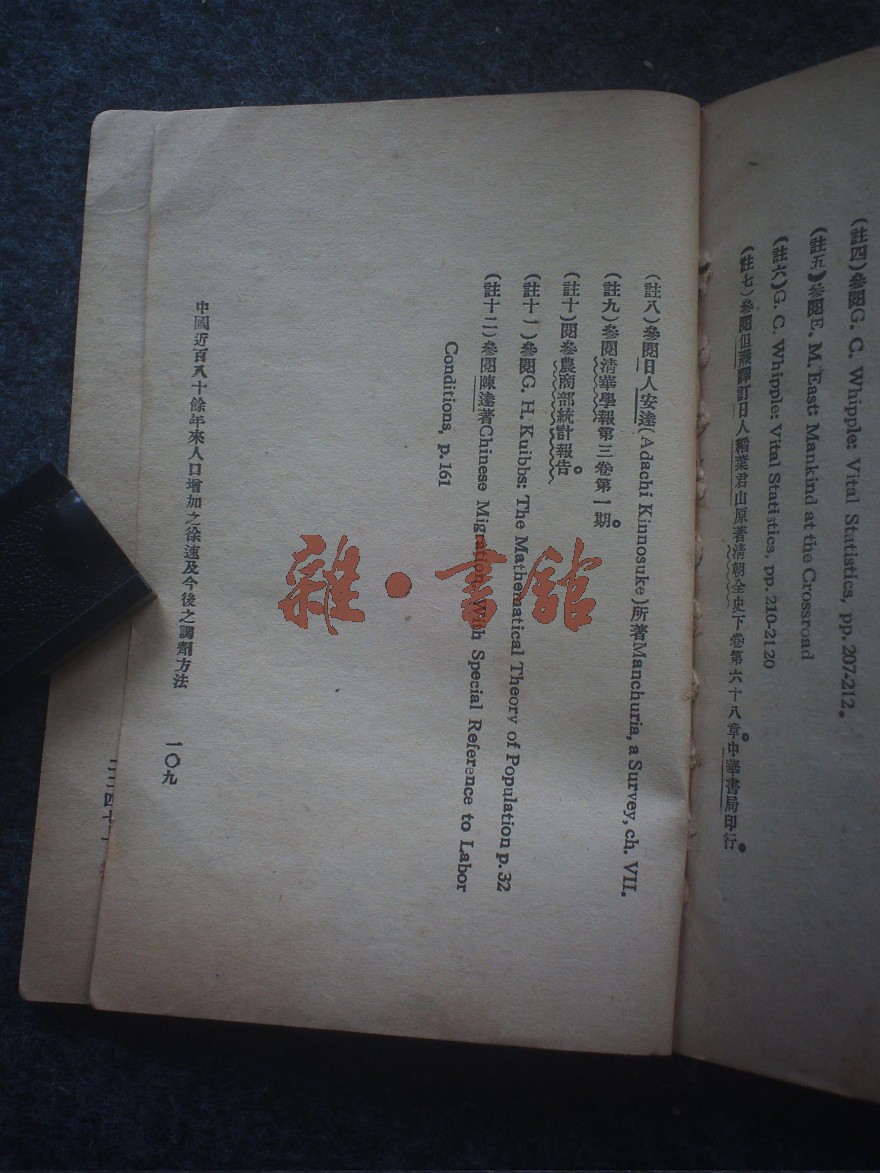 (註四)參閱G. C. Whipple: Vital Statistics, pp. 207-212。
(註五)參閱E. M. East: Mankind at the Crossroad
(註六)G. C. Whipple: Vital Statistics, pp. 210-2120
(註七)參閱但燾譯訂日人稻葉君山原著清朝全史下卷第六十八章。中華書局印行。
(註八)參閱日人安達(Adachi Kinnosuke)所著Manchuria, a Survey, ch. VII.
(註九)參閱清華學報第三卷第一期。
(註十)閱參農商部統計報告。
(註十一)參閱G. H. Kuibbs: The Mathematical Theory of Population p. 32
(註十二)參閱陳達著Chinese Migration With Special Reference to Labor
Conditions, p. 161
中國近百八十餘年來人口增加之徐速及今後之調劑方法
一〇九
雜·書館